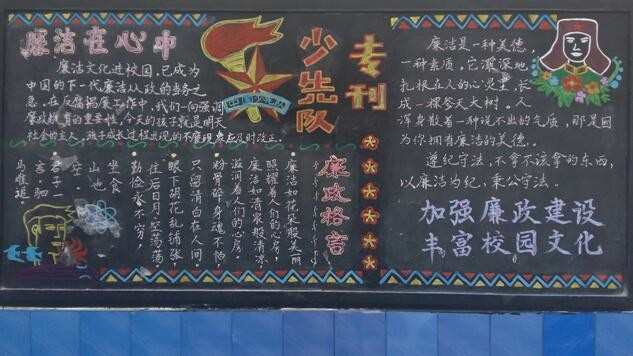 廉洁在心中
廉洁文化进校园,已成为
中国的下一代廉洁从政的当务之
急,在反腐倡廉工作中,我们向强调
廉政教育的重要性,今天的孩子就是明天
社会的主人,孩子成长过程出现的不廉现象应及时改正。
中国少先队
少先队
专刊
廉政格言
廉洁如花朵般美丽
照耀着人们的心房,
廉洁如清泉般清凉,
滋润着人们的心房。
粉骨碎身魂不怕
只留清白在人间,
眼下胡花乱铺张
往后日月空荡荡,
勤俭永不穷,
坐食
山也
空。
君子
马难追
廉洁是一种美德,
一种素质,它深深地
扎根在人的心灵里,长
成一棵参天大树,人
浑身散着一种说不出的气质,那是因
为你拥有廉洁的美德。
遵纪守法,不拿不该拿的东西,
以廉洁为纪,秉公守法。
加强廉政建设
丰富校园文化